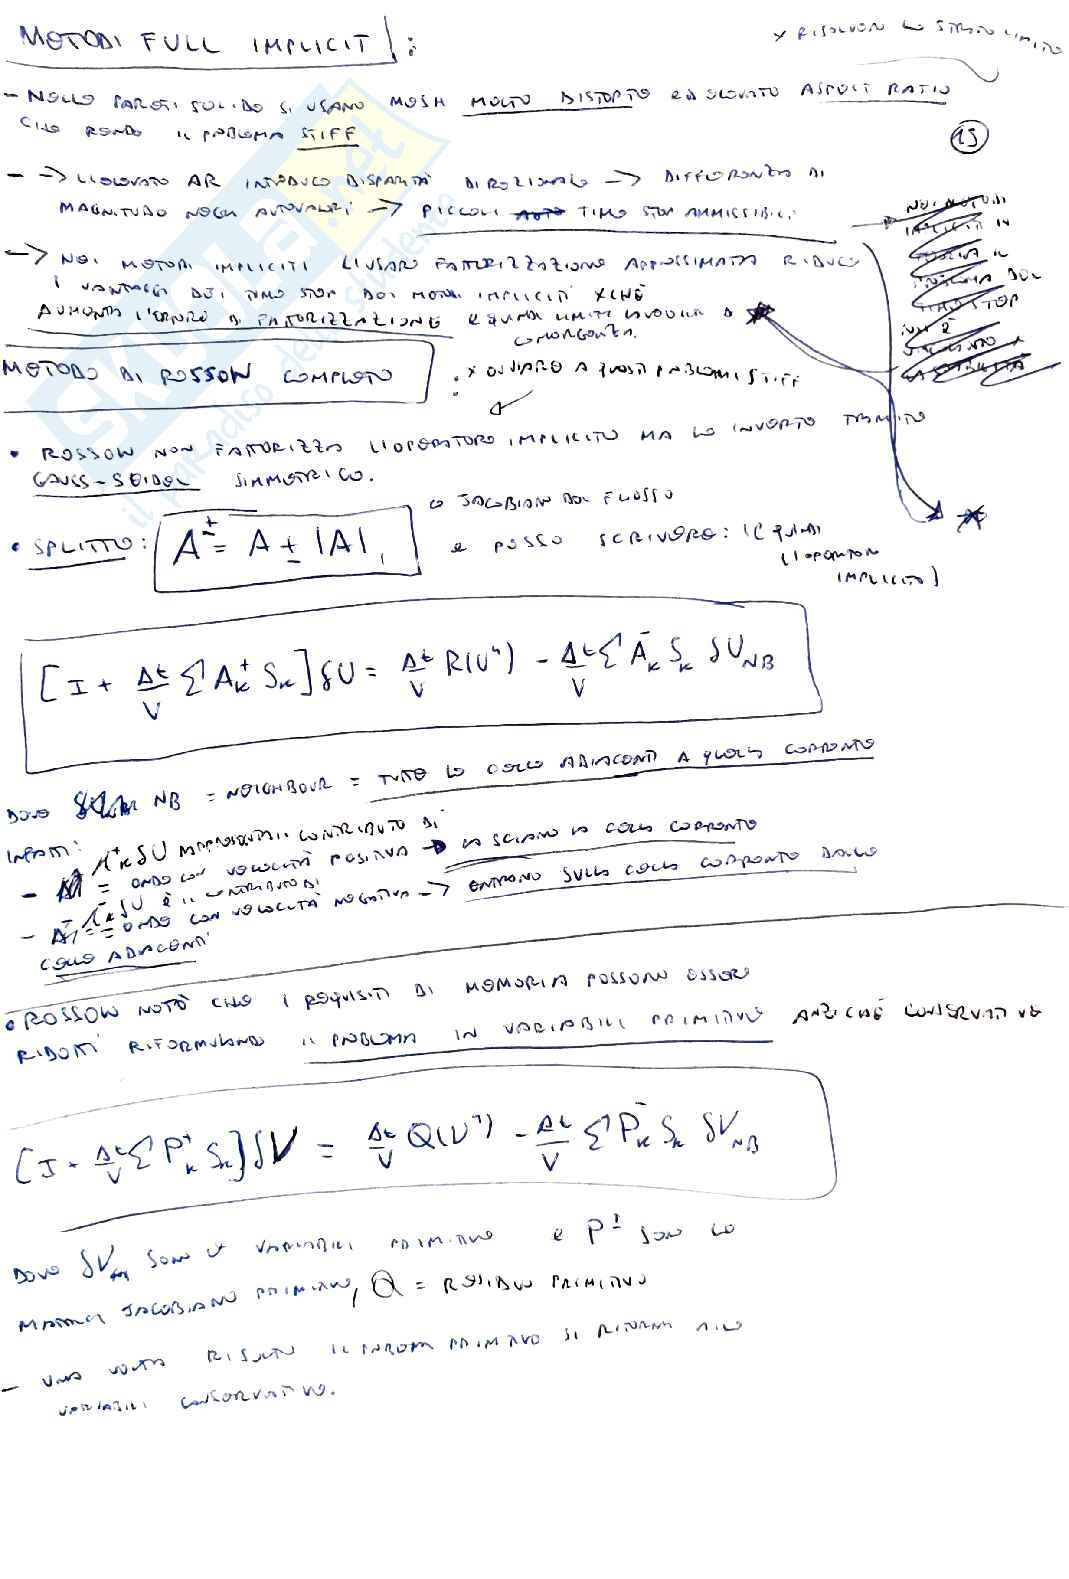 METODI FULL IMPLICIT:
x RISOLVERE LO STRATO LIMITE
- NELLE PARETI SOLIDE SI USANO MESH MOLTO DISTORTE ED ELEVATO ASPECT RATIO
CHE RENDE IL PROBLEMA STIFF
15
- -> L'ELEVATO AR INTRODUCE DISPARITÀ DIREZIONALE -> DIFFERENZA DI
MAGNITUDO NEGLI AUTOVALORI -> PICCOLI TIME STEP AMMISSIBILI
-> NEI METODI IMPLICITI L'USARE FATTORIZZAZIONE APPROSSIMATA RIDUCE
I VANTAGGI DEI TIME STEP DEI METODI IMPLICITI XCHÈ
AUMENTA L'ERRORE DI FATTORIZZAZIONE E QUINDI LIMITE LA VELOCITÀ DI
CONVERGENZA.
NEI METODI
IMPLICITI IN
TEORIA IL
PROBLEMA DEL
TIME STOP
NON È
LA STABILITÀ
METODO DI ROSSOW COMPLETO : x OVVIARE A QUESTI PROBLEMI STIFF
• ROSSOW NON FATTORIZZA L'OPERATORE IMPLICITO MA LO INVERTE TRAMITE
GAUSS-SEIDEL SIMMETRICO.
• SPLITTO: A± = A ± |A|, LO JACOBIANO DEL FLUSSO
E POSSO SCRIVERE: (E QUINDI
L'OPERATORE
IMPLICITO)
[I + Δt/V Σ A⁺ₖ Sₖ] δU = Δt/V R(Uⁿ) - Δt/V Σ A⁻ₖ Sₖ δU_NB
DOVE NB = NEIGHBOUR = TUTTE LE CELLE ADIACENTI A QUELLA CORRENTE
INFATTI:
- A⁺ₖ δU RAPPRESENTA IL CONTRIBUTO DI
= ONDE CON VELOCITÀ POSITIVA -> LASCIANO LA CELLA CORRENTE
- A⁻ₖ δU È IL CONTRIBUTO DI
= ONDE CON VELOCITÀ NEGATIVA -> ENTRANO SULLA CELLA CORRENTE DALLE
CELLE ADIACENTI
• ROSSOW NOTÒ CHE I REQUISITI DI MEMORIA POSSONO ESSERE
RIDOTTI RIFORMULANDO IL PROBLEMA IN VARIABILI PRIMITIVE ANZICHÈ CONSERVATIVE
[I + Δt/V Σ P⁺ₖ Sₖ] δV = Δt/V Q(Vⁿ) - Δt/V Σ P⁻ₖ Sₖ δV_NB
DOVE δV SONO LE VARIABILI PRIMITIVE E P± SONO LE
MATRICI JACOBIANE PRIMITIVE, Q = RESIDUO PRIMITIVO
- UNA VOLTA RISOLTO IL PROBLEMA PRIMITIVO SI RITORNA ALLE
VARIABILI CONSERVATIVE.
SKUOLA.net
il paradiso dello studente